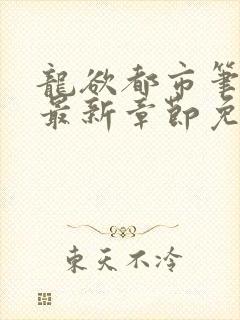 龍欲都市筆
最新章節免
東天不冷